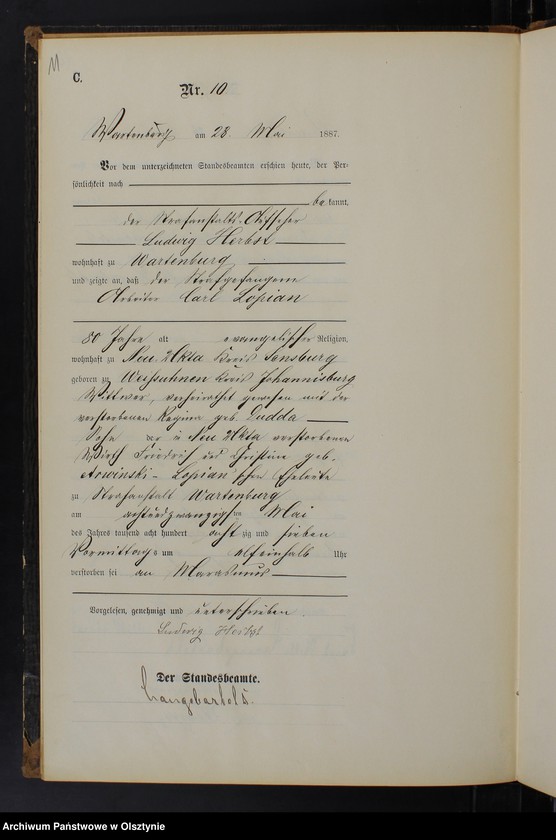 M
C.
Nr. 10
Wartenburg am 28. Mai 1887.
Vor dem unterzeichneten Standesbeamten erschien heute, der Per-
sönlichkeit nach
be kannt,
der Strafanstalts-Aufseher
Ludwig Herbst
wohnhaft zu Wartenburg
und zeigte an, daß der Strafgefangene
Arbeiter Carl Lopian
80 Jahre alt evangelischer Religion,
wohnhaft zu Neu Ukta Kreis Sensburg
geboren zu Weissuhnen Kreis Johannisburg
Wittwer, verheirathet gewesen mit der
verstorbenen Regina geb. Dudda
Sohn der in Neu Ukta verstorbenen
Wirth Friedrich und Christine geb.
Lopian'schen Eheleute
zu Strafanstalt Wartenburg
am achtundzwanzigsten Mai
des Jahres tausend acht hundert acht zig und sieben
Vormittags um elfeinhalb Uhr
verstorben sei an Marasmus
Vorgelesen, genehmigt und unterschrieben.
Ludwig Herbst
Der Standesbeamte.
Archiwum Państwowe w Olsztynie